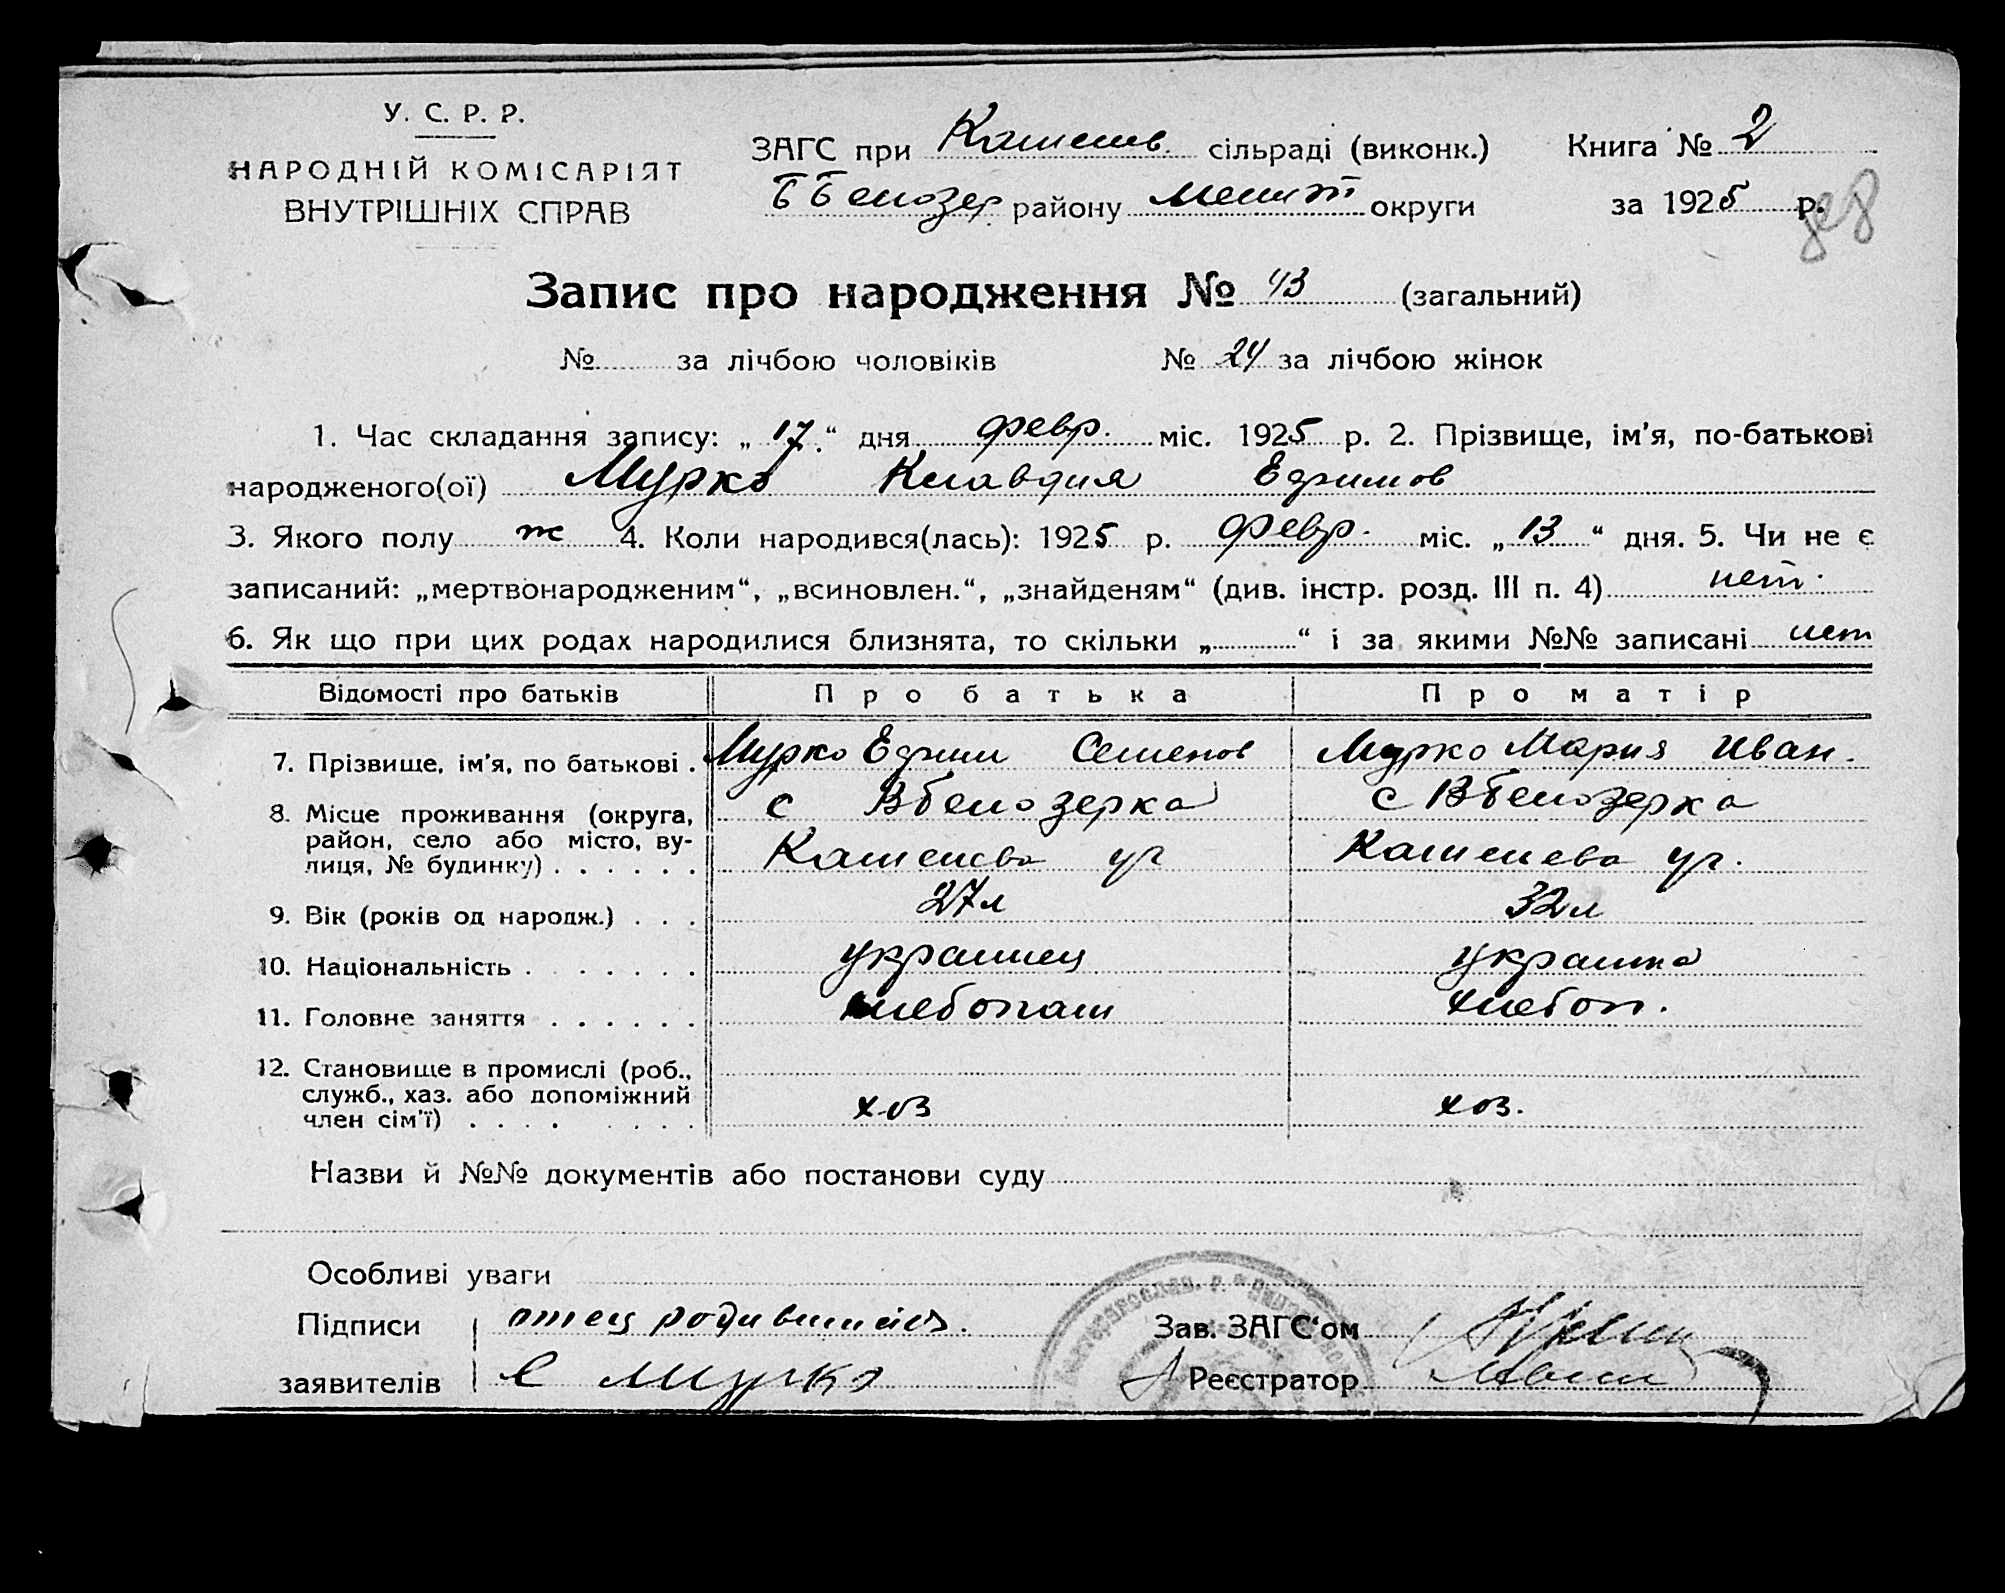 У. С. Р. Р.
НАРОДНІЙ КОМІСАРІЯТ
ВНУТРІШНІХ СПРАВ
ЗАГС при сільраді (виконк.) Книга № 2
району Мелит округи за 1925 р.
Запис про народження № 43 (загальний)
№ за лічбою чоловіків № 24 за лічбою жінок
1. Час складання запису: „ 17 “ дня февр. міс. 1925 р. 2. Прізвище, ім’я, по-батькові
народженого(ої) Мурко Клавдия Ефимов
3. Якого полу ж 4. Коли народився(лась): 1925 р. февр. міс. „ 13 “ дня. 5. Чи не є
записаний: „мертвонародженим“, „всиновлен.“, „знайденям“ (див. інстр. розд. III п. 4) нет.
6. Як що при цих родах народилися близнята, то скільки „ “ і за якими №№ записані нет
Відомості про батьків Про батька Про матір
7. Прізвище, ім’я, по батькові . Мурко Ефим Семенов Мурко Мария Иван.
8. Місце проживання (округа, с Вбелозерка с Вбелозерка
район, село або місто, ву-
лиця, № будинку) . . . . . .
9. Вік (років од народж.) . . . 27 л 32 л
10. Національність . . . . . . . украинец украинка
11. Головне заняття . . . . . . хлебопаш хлебоп.
12. Становище в промислі (роб.,
служб., хаз. або допоміжний хоз хоз.
член сім’ї) . . . . . . . .
Назви й №№ документів або постанови суду
Особливі уваги
Підписи отец родившейся.
Зав. ЗАГС‘ом
заявителів Е Мурко
Реєстратор